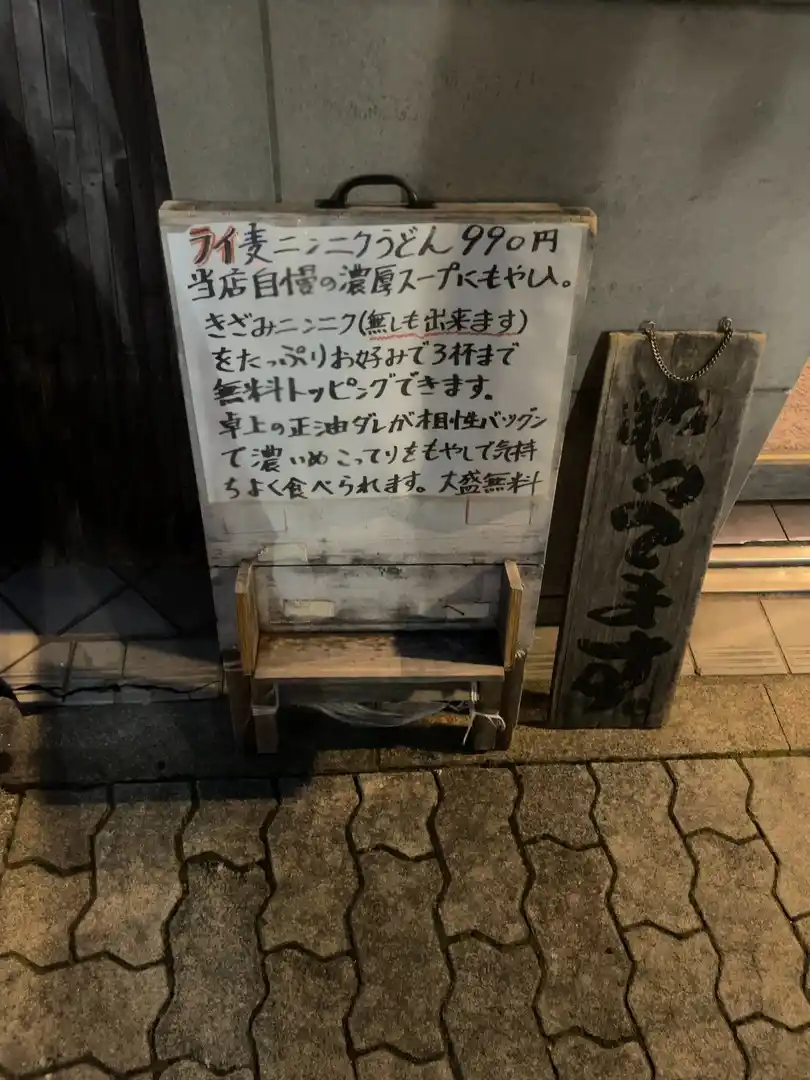 ライ麦ニンニクうどん 990円
当店自慢の濃厚スープにもやし入。
きざみニンニク(無しも出来ます)
をたっぷりお好みで3杯まで
無料トッピングできます。
卓上の正油ダレが相性バツグン
で濃いめこってりをもやしで気持
ちよく食べられます。大盛無料
やってます。